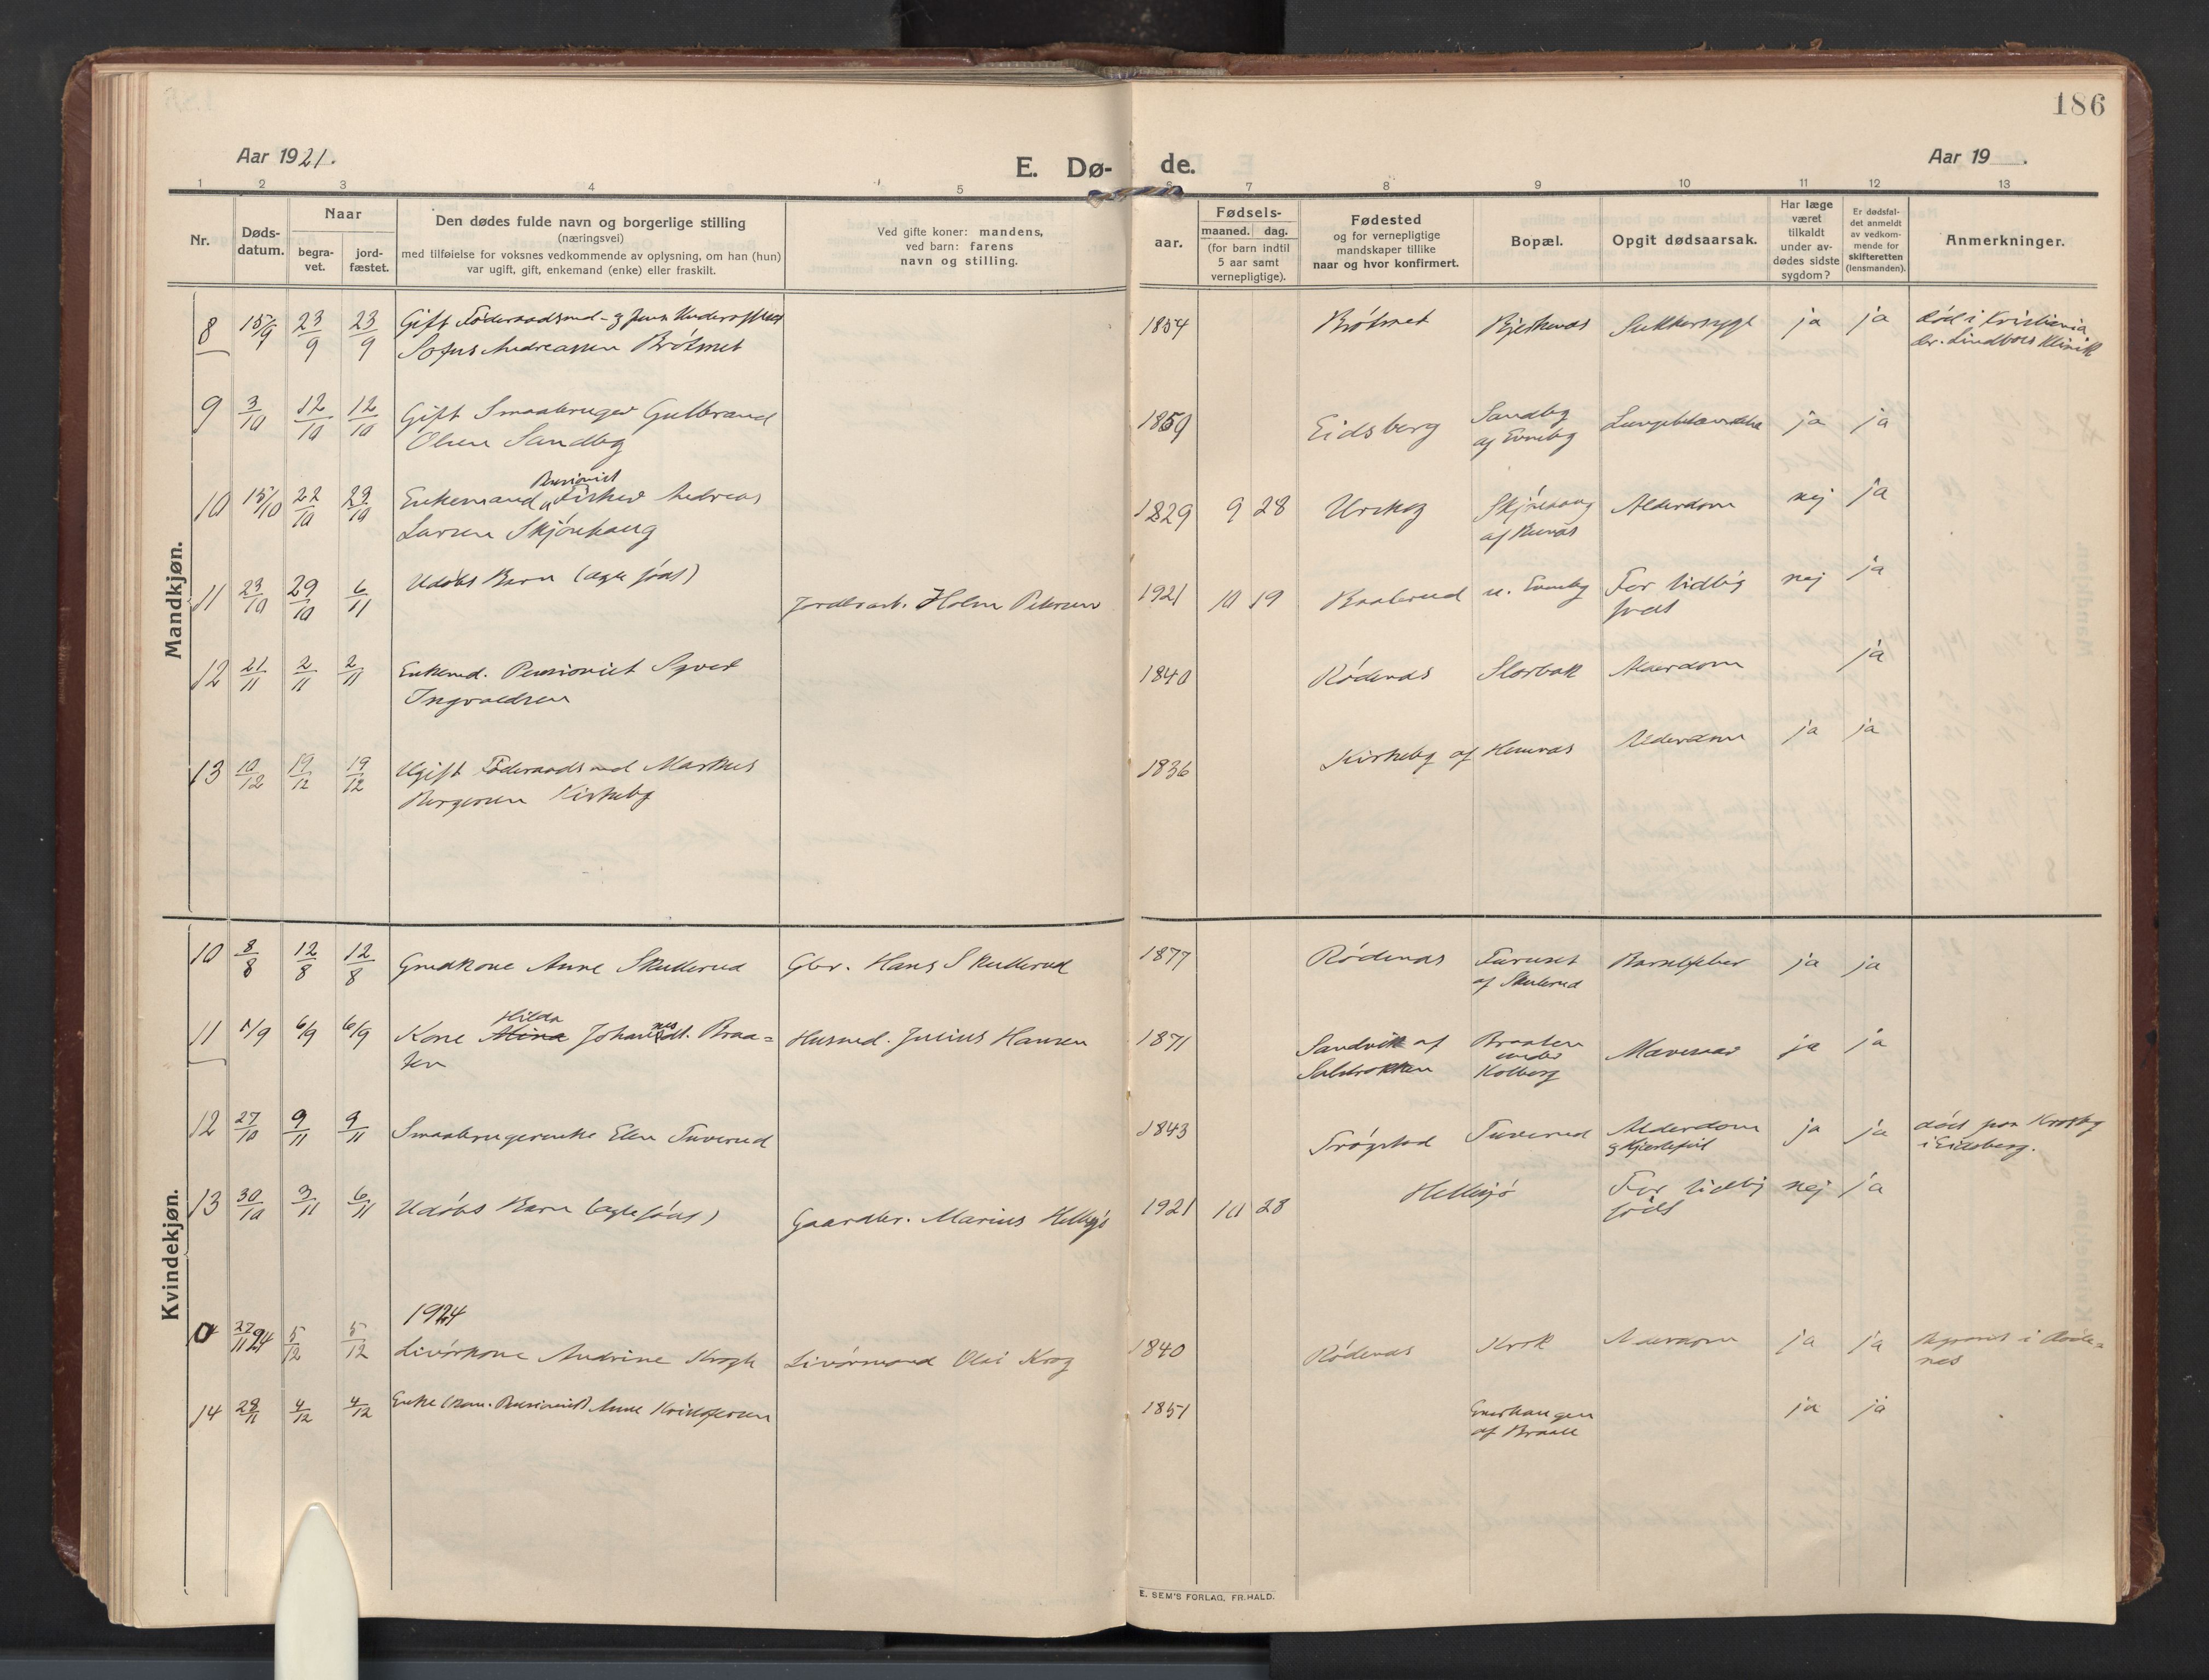 186
Aar 1921.
E. Dø-
de.
Aar 19 .
1 2 3 4 5 6 7 8 9 10 11 12 13
Nr.
Døds-
datum.
Naar
begra-
vet.
jord-
fæstet.
Den dødes fulde navn og borgerlige stilling
(næringsvei)
med tilføielse for voksnes vedkommende av oplysning, om han (hun)
var ugift, gift, enkemand (enke) eller fraskilt.
Ved gifte koner: mandens,
ved barn: farens
navn og stilling.
Fødsels-
aar.
maaned. dag.
(for barn indtil
5 aar samt
vernepligtige).
Fødested
og for vernepligtige
mandskaper tillike
naar og hvor konfirmert.
Bopæl.
Opgit dødsaarsak.
Har læge
været
tilkaldt
under av-
dødes sidste
sygdom?
Er dødsfal-
det anmeldt
av vedkom-
mende for
skifteretten
(lensmanden).
Anmerkninger.
Mandkjøn.
8 15/9 23/9 23/9 Gift Föderaadsmd. og
Sofus Andreassen Brötmet
1854 Brötmet Sukkersyge ja ja död i Kristiania
dr. Lindboes Klinik
9 3/10 12/10 12/10 Gift Smaabruger Gulbrand
Olsen Sandby
1859 Eidsberg Sandby
af Evneby
ja ja
10 15/10 22/10 Pensionist
Enkemand Fisker Andreas
Larsen Skjönhaug
1829 9 28 Urskog Alderdom nej ja
11 23/10 29/10 6/11 Udöbt Barn (ægte födt)
Holm Petersen
1921 10 19 u. Evneby For tidlig
födt
nej ja
12 21/11 2/11 2/11 Enkemd. Pensionist Syvert
Ingvaldsen
1840 Rödenes Slorbak Alderdom ja
13 10/12 19/12 19/12 Ugift Föderaadsmd Markus
Borgersen Kirkeby
1836 Kirkeby af Hemnæs Alderdom ja ja
Kvindekjøn.
10 8/8 12/8 12/8 Grmdkone Anne Skullerud
Gbr. Hans Skullerud
1877 Rödenes Furuset
af Skulerud
Barselfeber ja ja
11 1/9 6/9 6/9 Hilda
Kone Mina Johannesdt. Braa=
ten
Husmd. Julius Hansen
1871 Sandvik af
Braaten
under
Kolberg
Mavesaar ja ja
12 27/10 9/11 9/11 Smaabrugerenke Elen Tuverud
1843 Trögstad Tuverud Alderdom
og Hjertefeil
ja ja död paa Krosby
i Eidsberg.
13 30/10 3/11 6/11 Udöbt Barn (ægte födt)
Gaardbr. Marius Hellesjö
1921 10 28 Hellesjö For tidlig
födt
nej ja
1924
0 27/11 24 5/12 5/12 Livörkone Andrine Krogh
Livörmand Olai Krog
1840 Rödenes Krok Alderdom ja ja Begravet i Röde=
nes
14 28/11 4/12 4/12 Enke (kom. Pensionist) Anne Kristofersen
1851 Grushaugen
af Braate
ja ja
E. SEM'S FORLAG, FR.HALD.